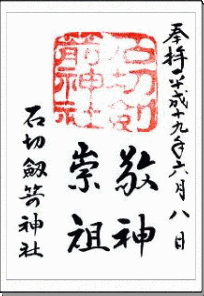 奉拝 平成十九年六月八日
石切劔
箭神社
敬神
崇祖
石切劔箭神社